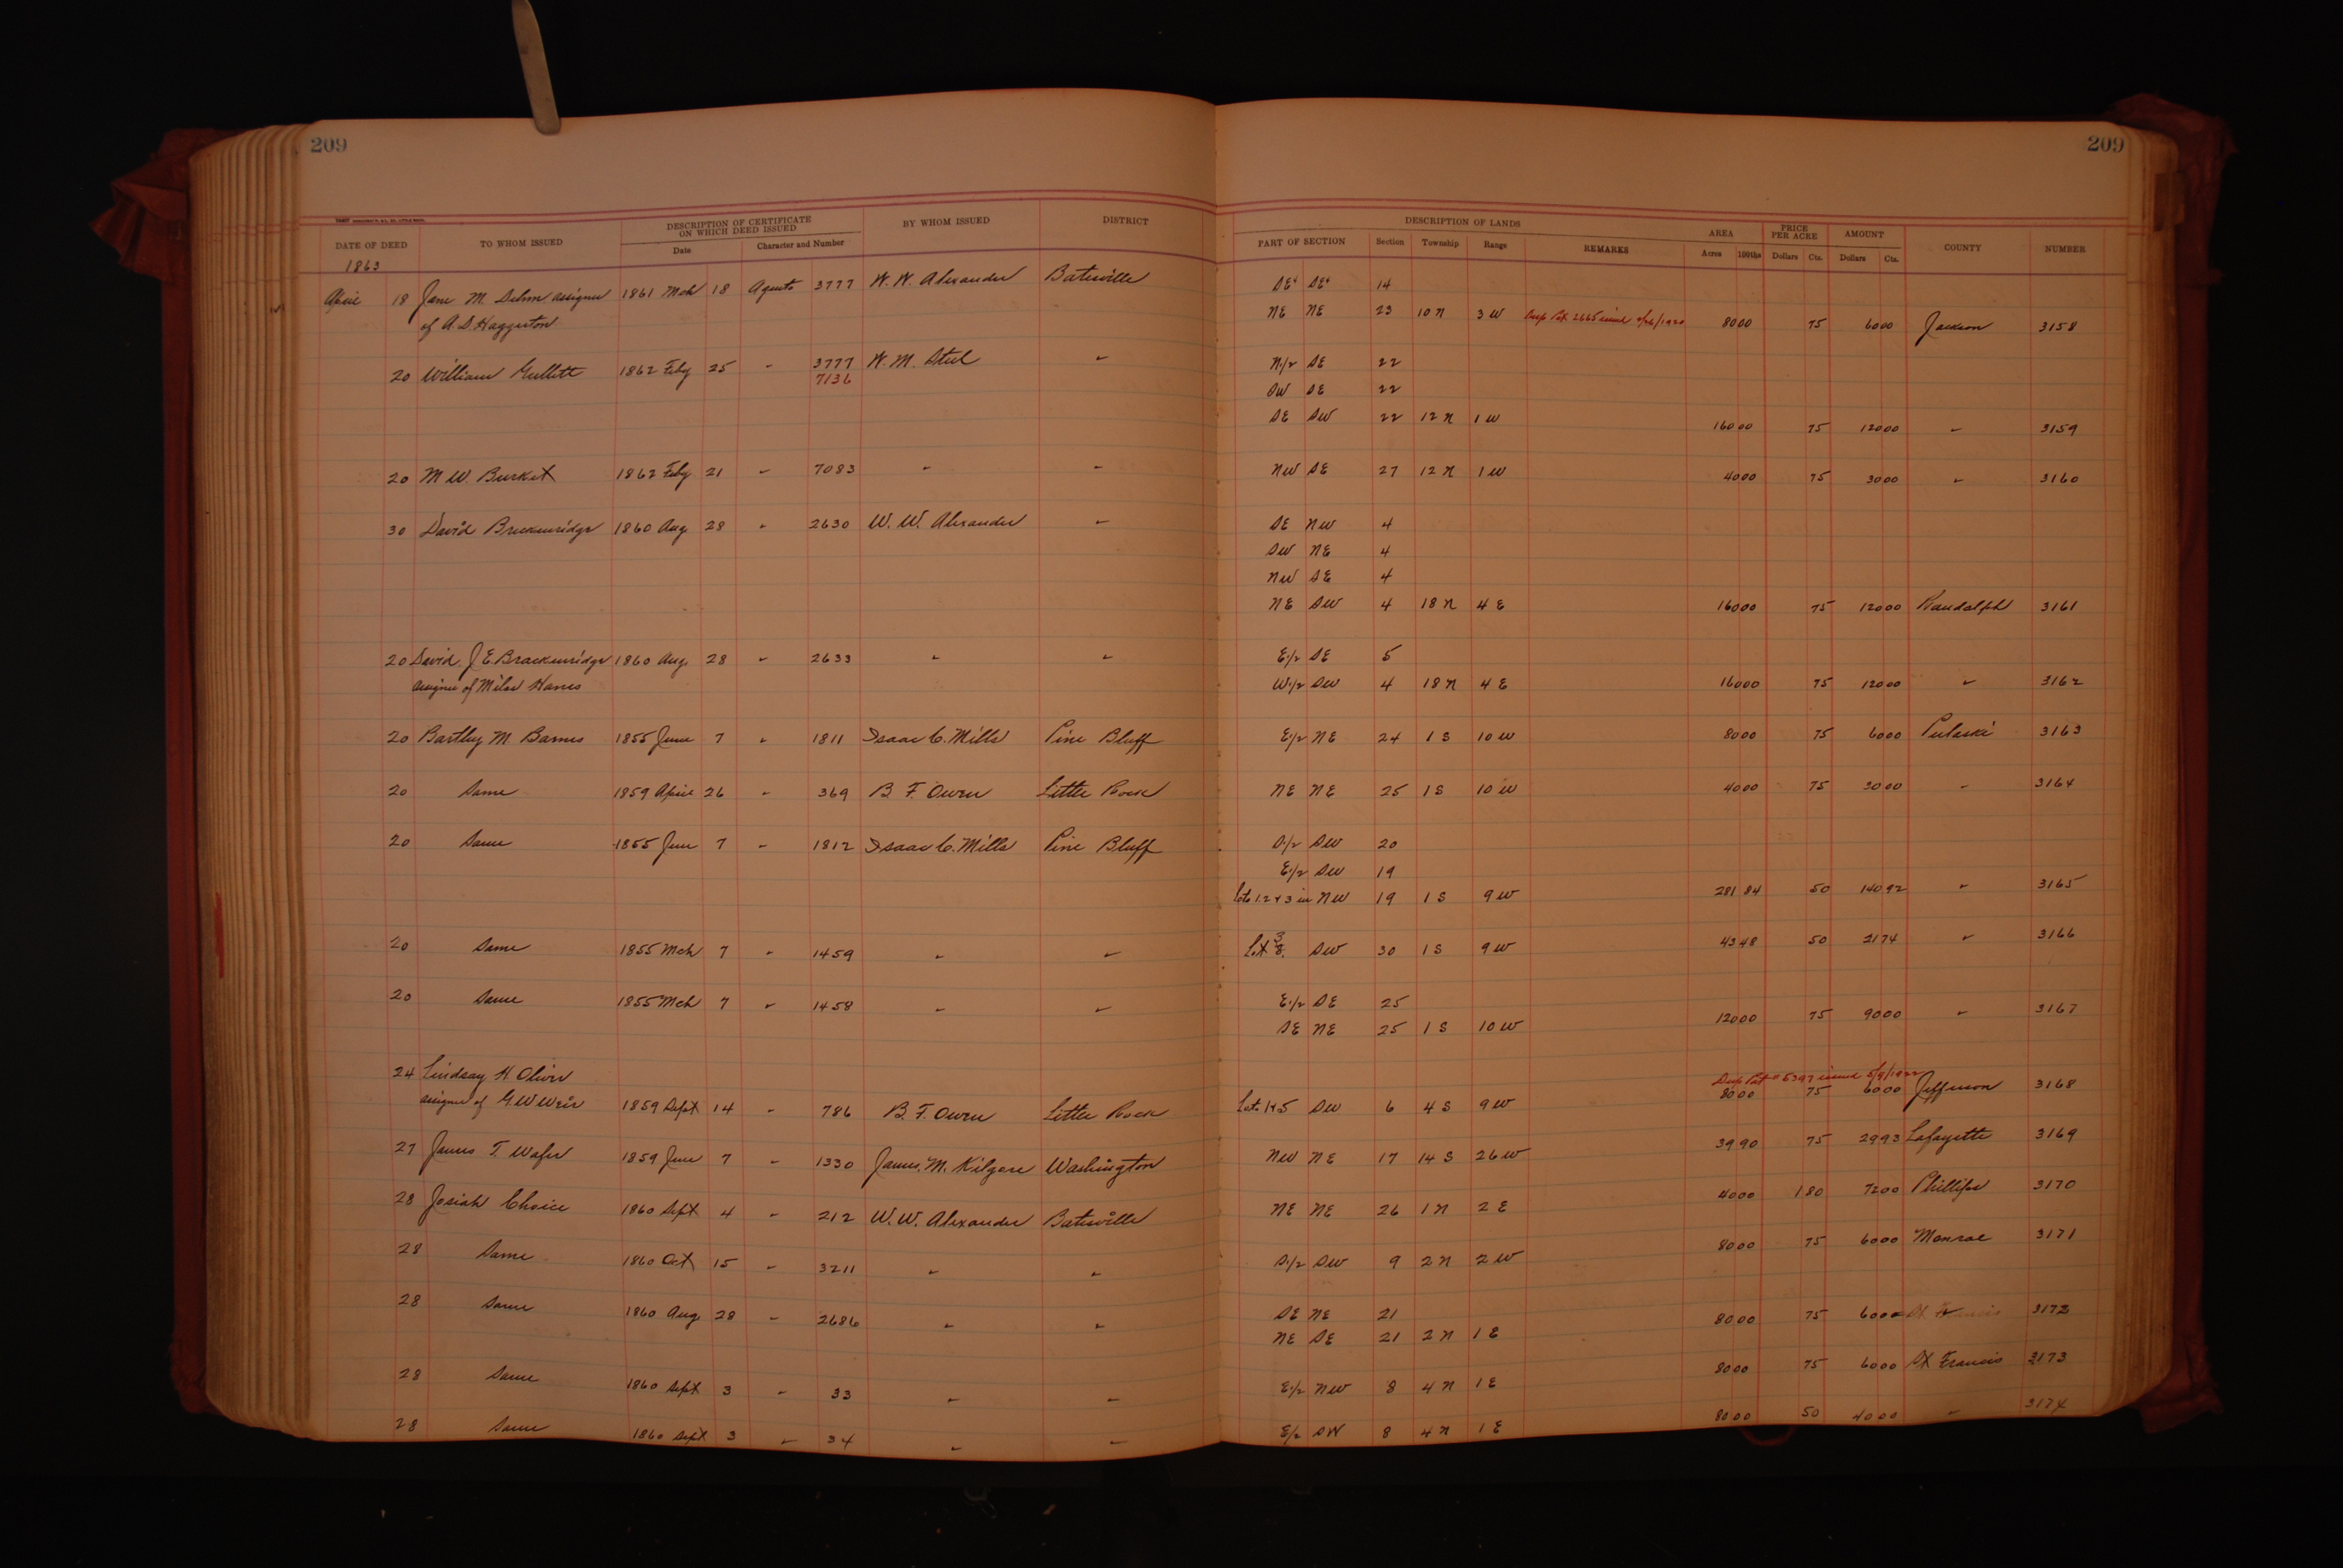 209 209
DATE OF DEED TO WHOM ISSUED DESCRIPTION OF CERTIFICATE ON WHICH DEED ISSUED BY WHOM ISSUED DISTRICT DESCRIPTION OF LANDS AREA PRICE PER ACRE AMOUNT COUNTY NUMBER
Date Character and Number PART OF SECTION Section Township Range REMARKS Acres 100ths Dollars Cts. Dollars Cts.
1863
April 18 Jane M. assignee 1861 Mch 18 Agents 3777 W. W. Alexander Batesville SE SE 14
of A. S. Haggerton NE NE 23 10 N 3 W Dup Pat 2665 issued 8000 75 6000 Jackson 3158
20 William Gullett 1862 Feby 25 " 3777 W. M. Steel " N 1/2 SE 22
7136 SW SE 22
SE SW 22 12 N 1 W 16000 75 12000 " 3159
20 M. W. Burket 1862 Feby 21 " 7083 " " NW SE 27 12 N 1 W 4000 75 3000 " 3160
30 David Breckenridge 1860 Aug 28 " 2630 W. W. Alexander " SE NW 4
SW NE 4
NW SE 4
NE SW 4 18 N 4 E 16000 75 12000 Randolph 3161
20 David J. E. Brackenridge 1860 Aug. 28 " 2633 " " E 1/2 SE 5
assignee of Milas Hanes W 1/2 SW 4 18 N 4 E 16000 75 12000 " 3162
20 Bartley M. Barnes 1855 June 7 " 1811 Isaac C. Mills Pine Bluff E 1/2 NE 24 1 S 10 W 8000 75 6000 Pulaski 3163
20 Same 1859 April 26 " 369 B. F. Owen Little Rock NE NE 25 1 S 10 W 4000 75 3000 " 3164
20 Same 1855 June 7 " 1812 Isaac C. Mills Pine Bluff S 1/2 SW 20
E 1/2 SW 19
Lots 1. 2 & 3 in NW 19 1 S 9 W 281 84 50 14092 " 3165
20 Same 1855 Mch 7 " 1459 " " Lot 3 SW 30 1 S 9 W 4348 50 2174 " 3166
20 Same 1855 Mch 7 " 1458 " " E 1/2 SE 25
SE NE 25 1 S 10 W 12000 75 9000 " 3167
24 Lindsay H. Oliver Dup Pat # 5397 issued 5/9/1922
assignee of G. W. Weir 1859 Sept 14 " 786 B. F. Owen Little Rock Lots 1 & 5 SW 6 4 S 9 W 8000 75 6000 Jefferson 3168
27 James T. Wafer 1859 June 7 " 1330 James. M. Kilgore Washington NW NE 17 14 S 26 W 3990 75 2993 Lafayette 3169
28 Josiah Choice 1860 Sept 4 " 212 W. W. Alexander Batesville NE NE 26 1 N 2 E 4000 1 80 7200 Phillips 3170
28 Same 1860 Oct 15 " 3211 " " S 1/2 SW 9 2 N 2 W 8000 75 6000 Monroe 3171
28 Same 1860 Aug 28 " 2686 " " SE NE 21
NE SE 21 2 N 1 E 8000 75 6000 St Francis 3172
28 Same 1860 Sept 3 " 33 " " E 1/2 NW 8 4 N 1 E 8000 75 6000 St Francis 3173
28 Same 1860 Sept 3 " 34 " " E 1/2 SW 8 4 N 1 E 8000 50 4000 " 3174